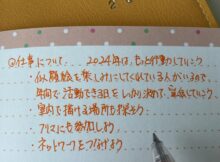 ④仕事について… 2024年は、もっと行動していこう
・似顔絵を楽しみにしてくれている人がいるので、
年間で活動できる日をしっかり決めて、宣伝していこう
・室内で描ける場所を探そう
・フリマにも参加しよう
・ネットワークをつなげよう